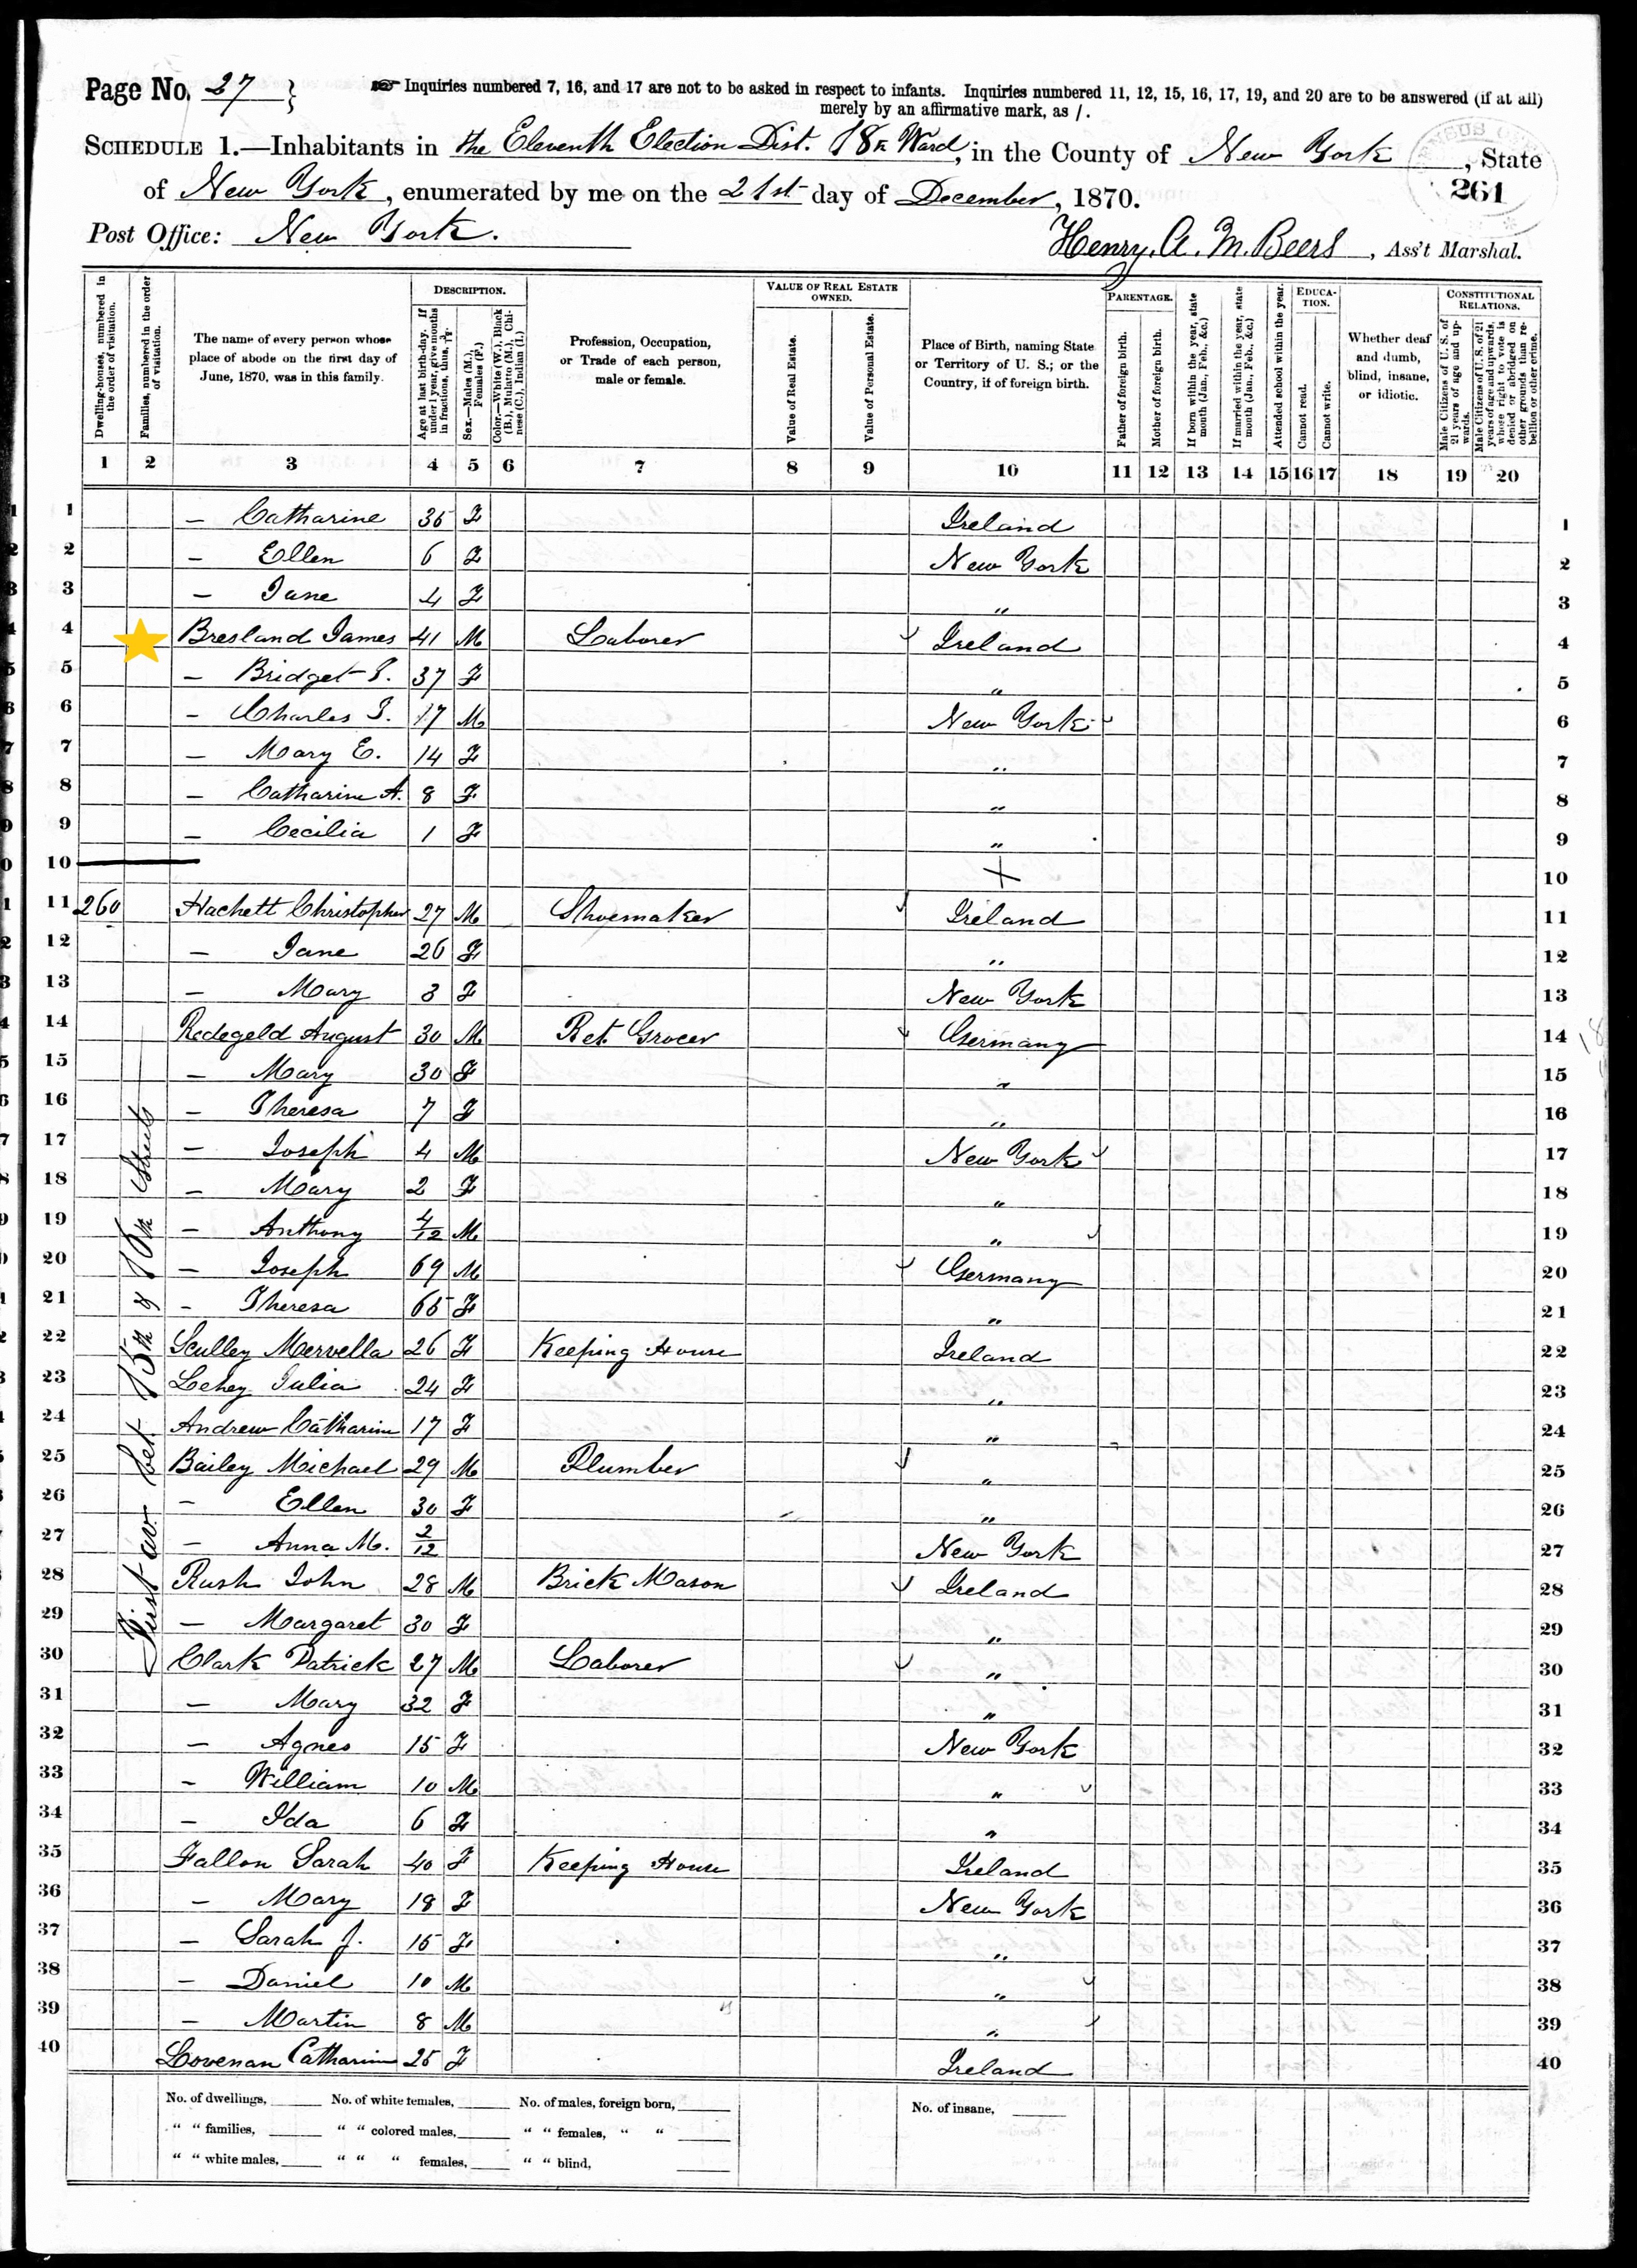 Page No. 27 } ☞ Inquiries numbered 7, 16, and 17 are not to be asked in respect to infants. Inquiries numbered 11, 12, 15, 16, 17, 19, and 20 are to be answered (if at all)
merely by an affirmative mark, as /.
SCHEDULE 1.—Inhabitants in the Eleventh Election Dist. 18th Ward, in the County of New York, State
261
of New York, enumerated by me on the 21st day of December, 1870.
Post Office: New York. Henry. A. M. Beers, Ass't Marshal.
Dwelling-houses, numbered in the order of visitation.
Families, numbered in the order of visitation.
The name of every person whose place of abode on the first day of June, 1870, was in this family.
DESCRIPTION.
Age at last birth-day. If under 1 year, give months in fractions, thus, 3/12
Sex.—Males (M.), Females (F.)
Color.—White (W.), Black (B.), Mulatto (M.), Chinese (C.), Indian (I.)
Profession, Occupation, or Trade of each person, male or female.
VALUE OF REAL ESTATE OWNED.
Value of Real Estate.
Value of Personal Estate.
Place of Birth, naming State or Territory of U. S.; or the Country, if of foreign birth.
PARENTAGE.
Father of foreign birth.
Mother of foreign birth.
If born within the year, state month (Jan., Feb., &c.)
If married within the year, state month (Jan., Feb., &c.)
Attended school within the year.
EDUCATION.
Cannot read.
Cannot write.
Whether deaf and dumb, blind, insane, or idiotic.
CONSTITUTIONAL RELATIONS.
Male Citizens of U. S. of 21 years of age and upwards.
Male Citizens of U. S. of 21 years of age and upwards, whose right to vote is denied or abridged on other grounds than rebellion or other crime.
1 2 3 4 5 6 7 8 9 10 11 12 13 14 15 16 17 18 19 20
1 — Catharine 35 F Ireland 1
2 — Ellen 6 F New York 2
3 — Jane 4 F " 3
4 Bresland James 41 M Laborer Ireland 4
5 — Bridget 37 F " 5
6 — Charles 17 M New York 6
7 — Mary E. 14 F " 7
8 — Catharine A. 8 F " 8
9 — Cecilia 1 F " 9
10 10
11 260 Hachett Christopher 27 M Shoemaker Ireland 11
12 — Jane 26 F " 12
13 — Mary 3 F New York 13
14 Redegeld August 30 M Ret. Grocer Germany 14
15 — Mary 30 F " 15
16 — Theresa 7 F " 16
17 — Joseph 4 M New York 17
18 — Mary 2 F " 18
19 — Anthony 4/12 M " 19
20 — Joseph 69 M Germany 20
21 — Theresa 65 F " 21
22 Sculley Mervella 26 F Keeping House Ireland 22
23 Lehey Julia 24 F " 23
24 Andrew Catharine 17 F " 24
25 Bailey Michael 29 M Plumber " 25
26 — Ellen 30 F " 26
27 — Anna M. 2/12 New York 27
28 Rush John 28 M Brick Mason Ireland 28
29 — Margaret 30 F " 29
30 Clark Patrick 27 M Laborer " 30
31 — Mary 32 F " 31
32 — Agnes 15 F New York 32
33 — William 10 M " 33
34 — Ida 6 F " 34
35 Fallon Sarah 40 F Keeping House Ireland 35
36 — Mary 18 F New York 36
37 — Sarah J. 15 F " 37
38 — Daniel 10 M " 38
39 — Martin 8 M " 39
40 Lovenan Catharine 25 F Ireland 40
First av. bet 15th & 16th Streets
No. of dwellings, No. of white females, No. of males, foreign born, No. of insane,
" " families, " " colored males, " " females, " "
" " white males, " " " females, " " blind,